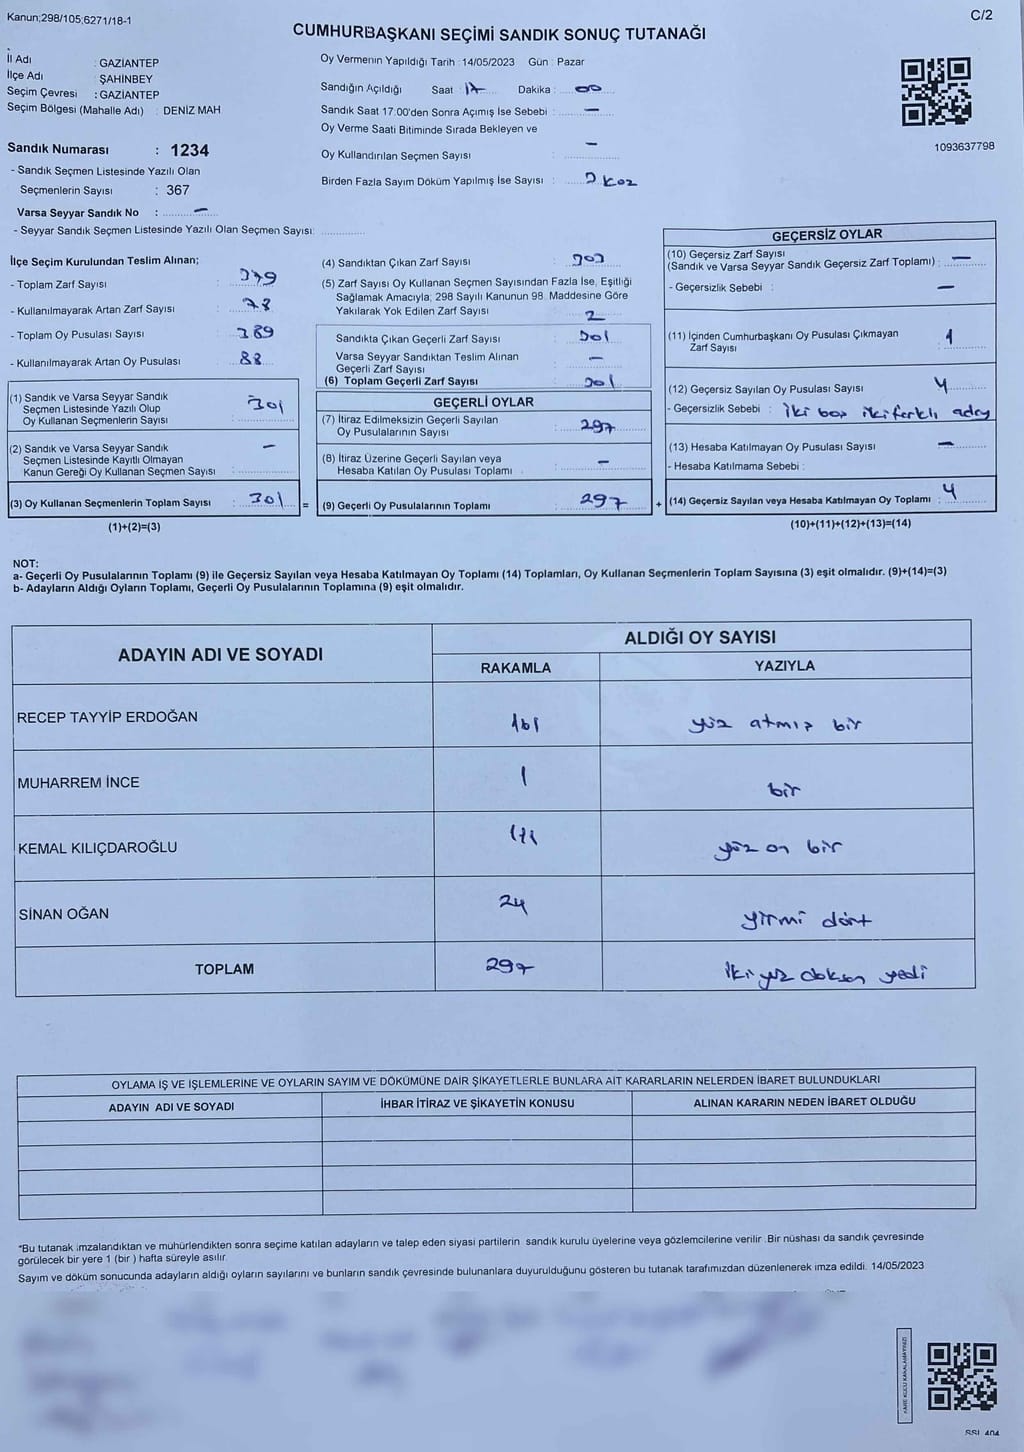 Kanun;298/105;6271/18-1
C/2
CUMHURBAŞKANI SEÇİMİ SANDIK SONUÇ TUTANAĞI
İl Adı : GAZİANTEP
İlçe Adı : ŞAHİNBEY
Seçim Çevresi : GAZİANTEP
Seçim Bölgesi (Mahalle Adı) : DENİZ MAH
Sandık Numarası : 1234
- Sandık Seçmen Listesinde Yazılı Olan
Seçmenlerin Sayısı : 367
Varsa Seyyar Sandık No : —
- Seyyar Sandık Seçmen Listesinde Yazılı Olan Seçmen Sayısı:
Oy Vermenin Yapıldığı Tarih : 14/05/2023 Gün : Pazar
Sandığın Açıldığı Saat : 17 Dakika : 00
Sandık Saat 17:00'den Sonra Açımış İse Sebebi : —
Oy Verme Saati Bitiminde Sırada Bekleyen ve
Oy Kullandırılan Seçmen Sayısı : —
Birden Fazla Sayım Döküm Yapılmış İse Sayısı :
1093637798
İlçe Seçim Kurulundan Teslim Alınan;
- Toplam Zarf Sayısı : 379
- Kullanılmayarak Artan Zarf Sayısı :
- Toplam Oy Pusulası Sayısı : 389
- Kullanılmayarak Artan Oy Pusulası : 88
(1) Sandık ve Varsa Seyyar Sandık
Seçmen Listesinde Yazılı Olup
Oy Kullanan Seçmenlerin Sayısı : 301
(2) Sandık ve Varsa Seyyar Sandık
Seçmen Listesinde Kayıtlı Olmayan
Kanun Gereği Oy Kullanan Seçmen Sayısı : —
(3) Oy Kullanan Seçmenlerin Toplam Sayısı : 301 =
(1)+(2)=(3)
(4) Sandıktan Çıkan Zarf Sayısı : 303
(5) Zarf Sayısı Oy Kullanan Seçmen Sayısından Fazla İse, Eşitliği
Sağlamak Amacıyla; 298 Sayılı Kanunun 98. Maddesine Göre
Yakılarak Yok Edilen Zarf Sayısı : 2
Sandıkta Çıkan Geçerli Zarf Sayısı : 301
Varsa Seyyar Sandıktan Teslim Alınan
Geçerli Zarf Sayısı : —
(6) Toplam Geçerli Zarf Sayısı : 301
GEÇERLİ OYLAR
(7) İtiraz Edilmeksizin Geçerli Sayılan
Oy Pusulalarının Sayısı : 297
(8) İtiraz Üzerine Geçerli Sayılan veya
Hesaba Katılan Oy Pusulası Toplamı : —
(9) Geçerli Oy Pusulalarının Toplamı : 297 +
GEÇERSİZ OYLAR
(10) Geçersiz Zarf Sayısı
(Sandık ve Varsa Seyyar Sandık Geçersiz Zarf Toplamı) : —
- Geçersizlik Sebebi : —
(11) İçinden Cumhurbaşkanı Oy Pusulası Çıkmayan
Zarf Sayısı : 1
(12) Geçersiz Sayılan Oy Pusulası Sayısı : 4
- Geçersizlik Sebebi : iki boş iki farklı aday
(13) Hesaba Katılmayan Oy Pusulası Sayısı : —
- Hesaba Katılmama Sebebi :
(14) Geçersiz Sayılan veya Hesaba Katılmayan Oy Toplamı : 4
(10)+(11)+(12)+(13)=(14)
NOT:
a- Geçerli Oy Pusulalarının Toplamı (9) ile Geçersiz Sayılan veya Hesaba Katılmayan Oy Toplamı (14) Toplamları, Oy Kullanan Seçmenlerin Toplam Sayısına (3) eşit olmalıdır. (9)+(14)=(3)
b- Adayların Aldığı Oyların Toplamı, Geçerli Oy Pusulalarının Toplamına (9) eşit olmalıdır.
ADAYIN ADI VE SOYADI
ALDIĞI OY SAYISI
RAKAMLA YAZIYLA
RECEP TAYYİP ERDOĞAN 161 yüz atmış bir
MUHARREM İNCE 1 bir
KEMAL KILIÇDAROĞLU 111 yüz on bir
SİNAN OĞAN 24 yirmi dört
TOPLAM 297 iki yüz doksan yedi
OYLAMA İŞ VE İŞLEMLERİNE VE OYLARIN SAYIM VE DÖKÜMÜNE DAİR ŞİKAYETLERLE BUNLARA AİT KARARLARIN NELERDEN İBARET BULUNDUKLARI
ADAYIN ADI VE SOYADI İHBAR İTİRAZ VE ŞİKAYETİN KONUSU ALINAN KARARIN NEDEN İBARET OLDUĞU
*Bu tutanak imzalandıktan ve mühürlendikten sonra seçime katılan adayların ve talep eden siyasi partilerin sandık kurulu üyelerine veya gözlemcilerine verilir. Bir nüshası da sandık çevresinde
görülecek bir yere 1 (bir ) hafta süreyle asılır.
Sayım ve döküm sonucunda adayların aldığı oyların sayılarını ve bunların sandık çevresinde bulunanlara duyurulduğunu gösteren bu tutanak tarafımızdan düzenlenerek imza edildi. 14/05/2023